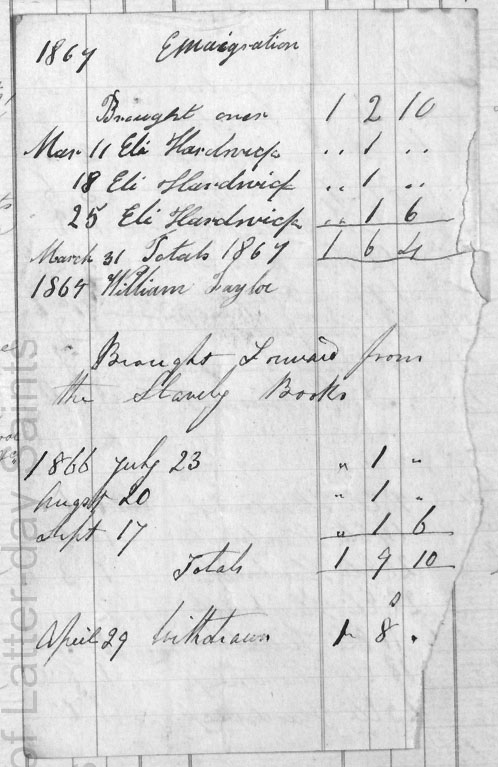 1867 Emaigration
Brought over 1 2 10
Mar 11 Eli Hardwick .. 1 ..
18 Eli Hardwick .. 1 ..
25 Eli Hardwick .. 1 6
March 31 Totals 1867 1 6 4
1867 William Taylor
Brought Forward from
the Stavely Books
1866 July 23 " 1 "
Augst 20 " 1 "
Sept 17 " 1 6
Totals 1 9 10
April 29 Withdrawn 1 8 .
of Latter-day Saints